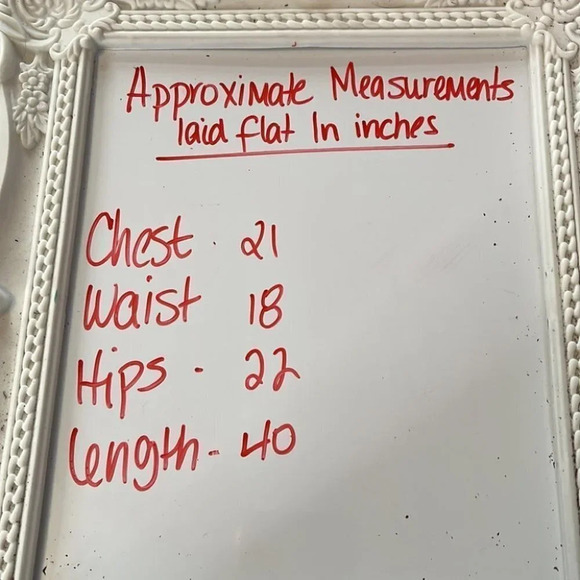 Approximate Measurements
laid flat In inches
Chest - 21
Waist 18
Hips - 22
Length - 40